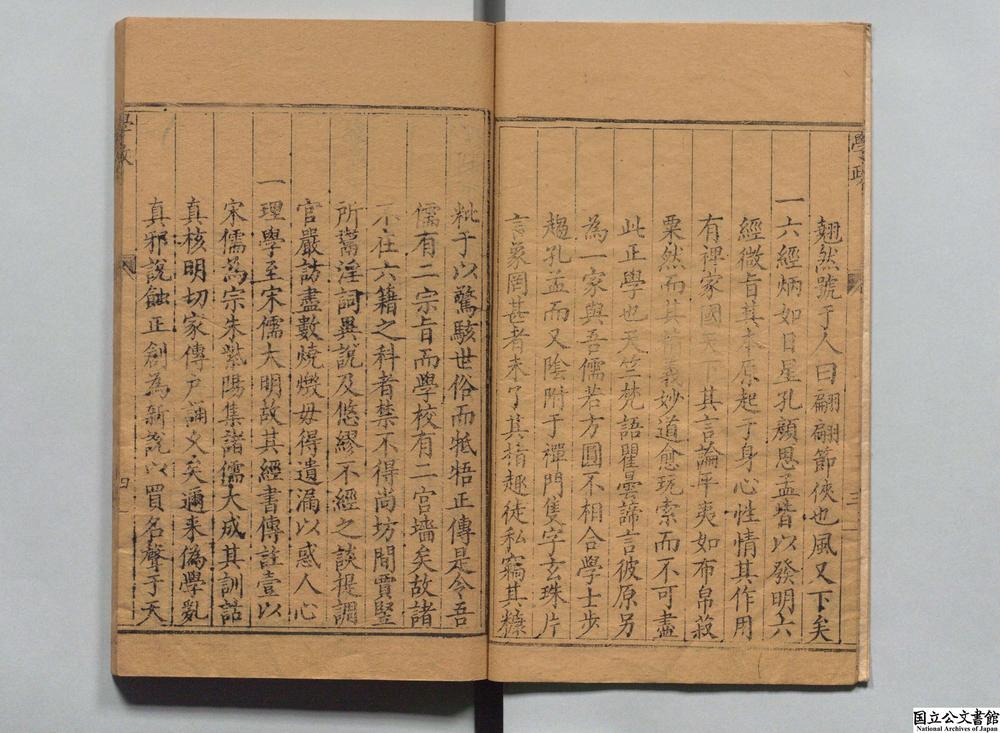 學政
翹然號于人曰翩翩節俠也風又下矣
一六經炳如日星孔顏思孟皆以發明六
經微旨其本原起于身心性情其作用
有裨家國天下其言論平夷如布帛菽
粟然而其精義妙道愈玩索而不可盡
此正學也天竺梵語瞿曇諦言彼原另
為一家與吾儒若方圓不相合學士步
趨孔孟而又陰附于禪門隻字玄珠片
言象罔甚者未了其指趣徒私竊其糠
三
粃于以驚駭世俗而牴牾正傳是令吾
儒有二宗旨而學校有二宮墻矣故諸
不在六籍之科者禁不得尚坊間賈豎
所鬻淫詞異說及悠繆不經之談提調
官嚴訪盡數燒燬毋得遺漏以惑人心
一理學至宋儒大明故其經書傳註壹以
宋儒為宗朱紫陽集諸儒大成其訓詁
真核明切家傳戶誦久矣邇来偽學亂
真邪說蝕正創為新說以買名聲于天
學政
四
国立公文書館
National Archives of Japan